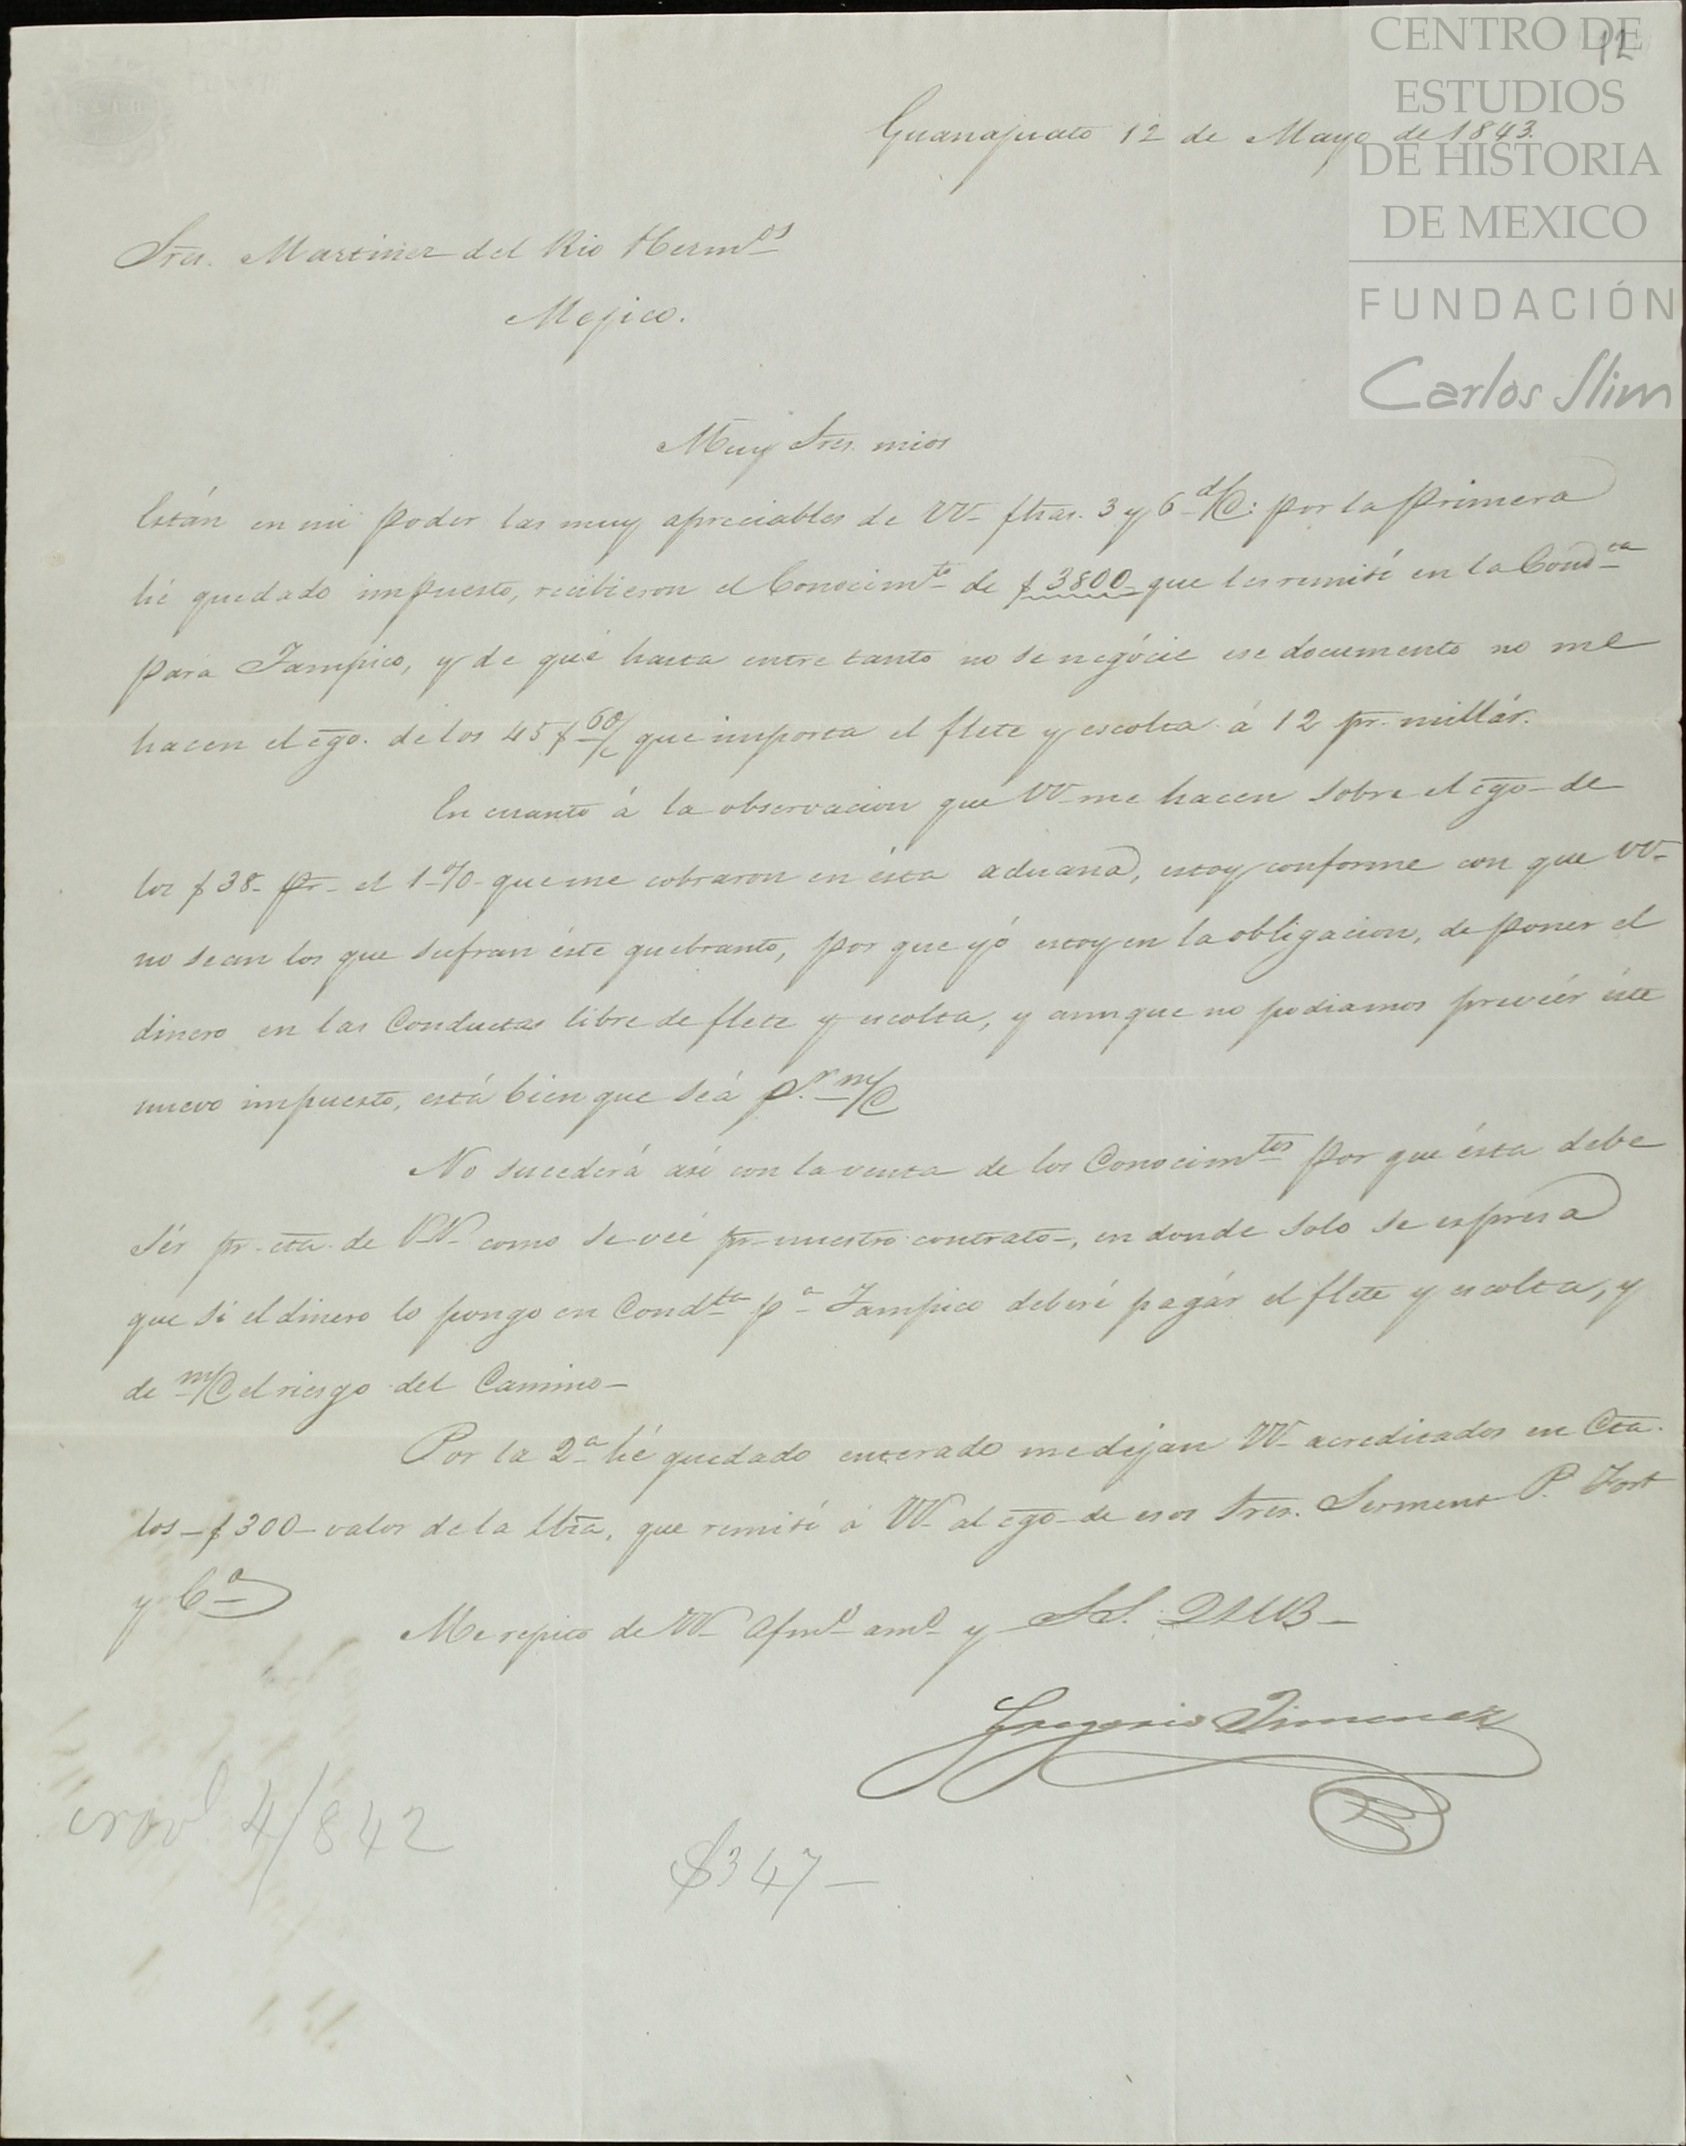 12
CENTRO DE
ESTUDIOS
DE HISTORIA
DE MEXICO
FUNDACIÓN
Carlos Slim
Guanajuato 12 de Mayo de 1843.
Sres. Martinez del Rio Herm.os
Mejico.
Muy Sres. mios
Están en mi poder las muy apreciables de VV. fhas. 3 y 6 d/C: por la primera
hé quedado impuesto, recibieron el Conocim.to de $3800 que les remití en la Cond.ta
para Tampico, y de que hasta entre tanto no se negócie ese documento no me
hacen el cgo. de los 45$ 60/c que importa el flete y escolta á 12 pr. millár.
En cuanto á la observacion que VV. me hacen sobre el cgo. de
los $38. pr. el 1 % que me cobraron en ésta aduana, estoy conforme con que VV.
no sean los que sufran éste quebranto, por que yó estoy en la obligacion, de poner el
dinero en las Conductas libre de flete y escolta, y aunque no podiamos preveér éste
nuevo impuesto, está bien que séa p.r m/C
No sucederá asi con la venta de los Conocim.tos por que ésta debe
sér pr. cta. de VV. como se vée pr. nuestro contrato, en donde solo se espresa
que si el dinero lo pongo en Cond.ta p.a Tampico deberé pagár el flete y escolta, y
de m/C el riesgo del Camino
Por la 2.a hé quedado enterado me dejan VV. acreditados en Cta.
los $300 valor de la Lbza, que remití á VV. al cgo. de esos Sres. Serment P. Fort
y C.a
Me repito de VV. Afmo. amo. y S.S. Q.S.M.B.
Gregorio Jimenez
4/842
$347